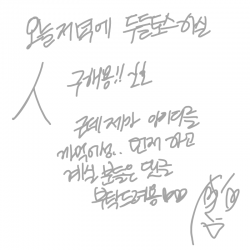 오늘저녁에 두들포스하실
人
구해용!! ㅋㅎ
근데 제가 아이디를
까먹어성.. 먼저 하고
계실 분들은 댓글
부탁드려용♡♡